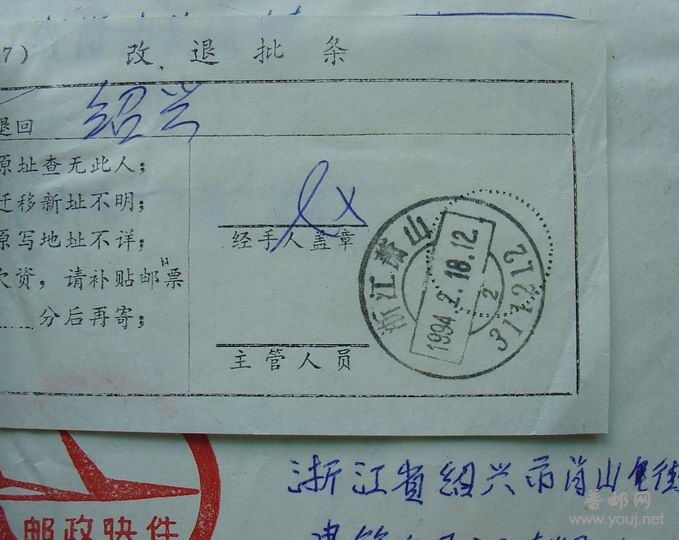 7) 改退批条
退回 绍兴
原址查无此人;
迁移新址不明;
原写地址不详;
欠资,请补贴邮票
分后再寄;
经手人盖章
主管人员
浙江萧山
1994.2.18.12.
2
311212
浙江省绍兴市肖山
邮政快件
善邮网
www.youj.net